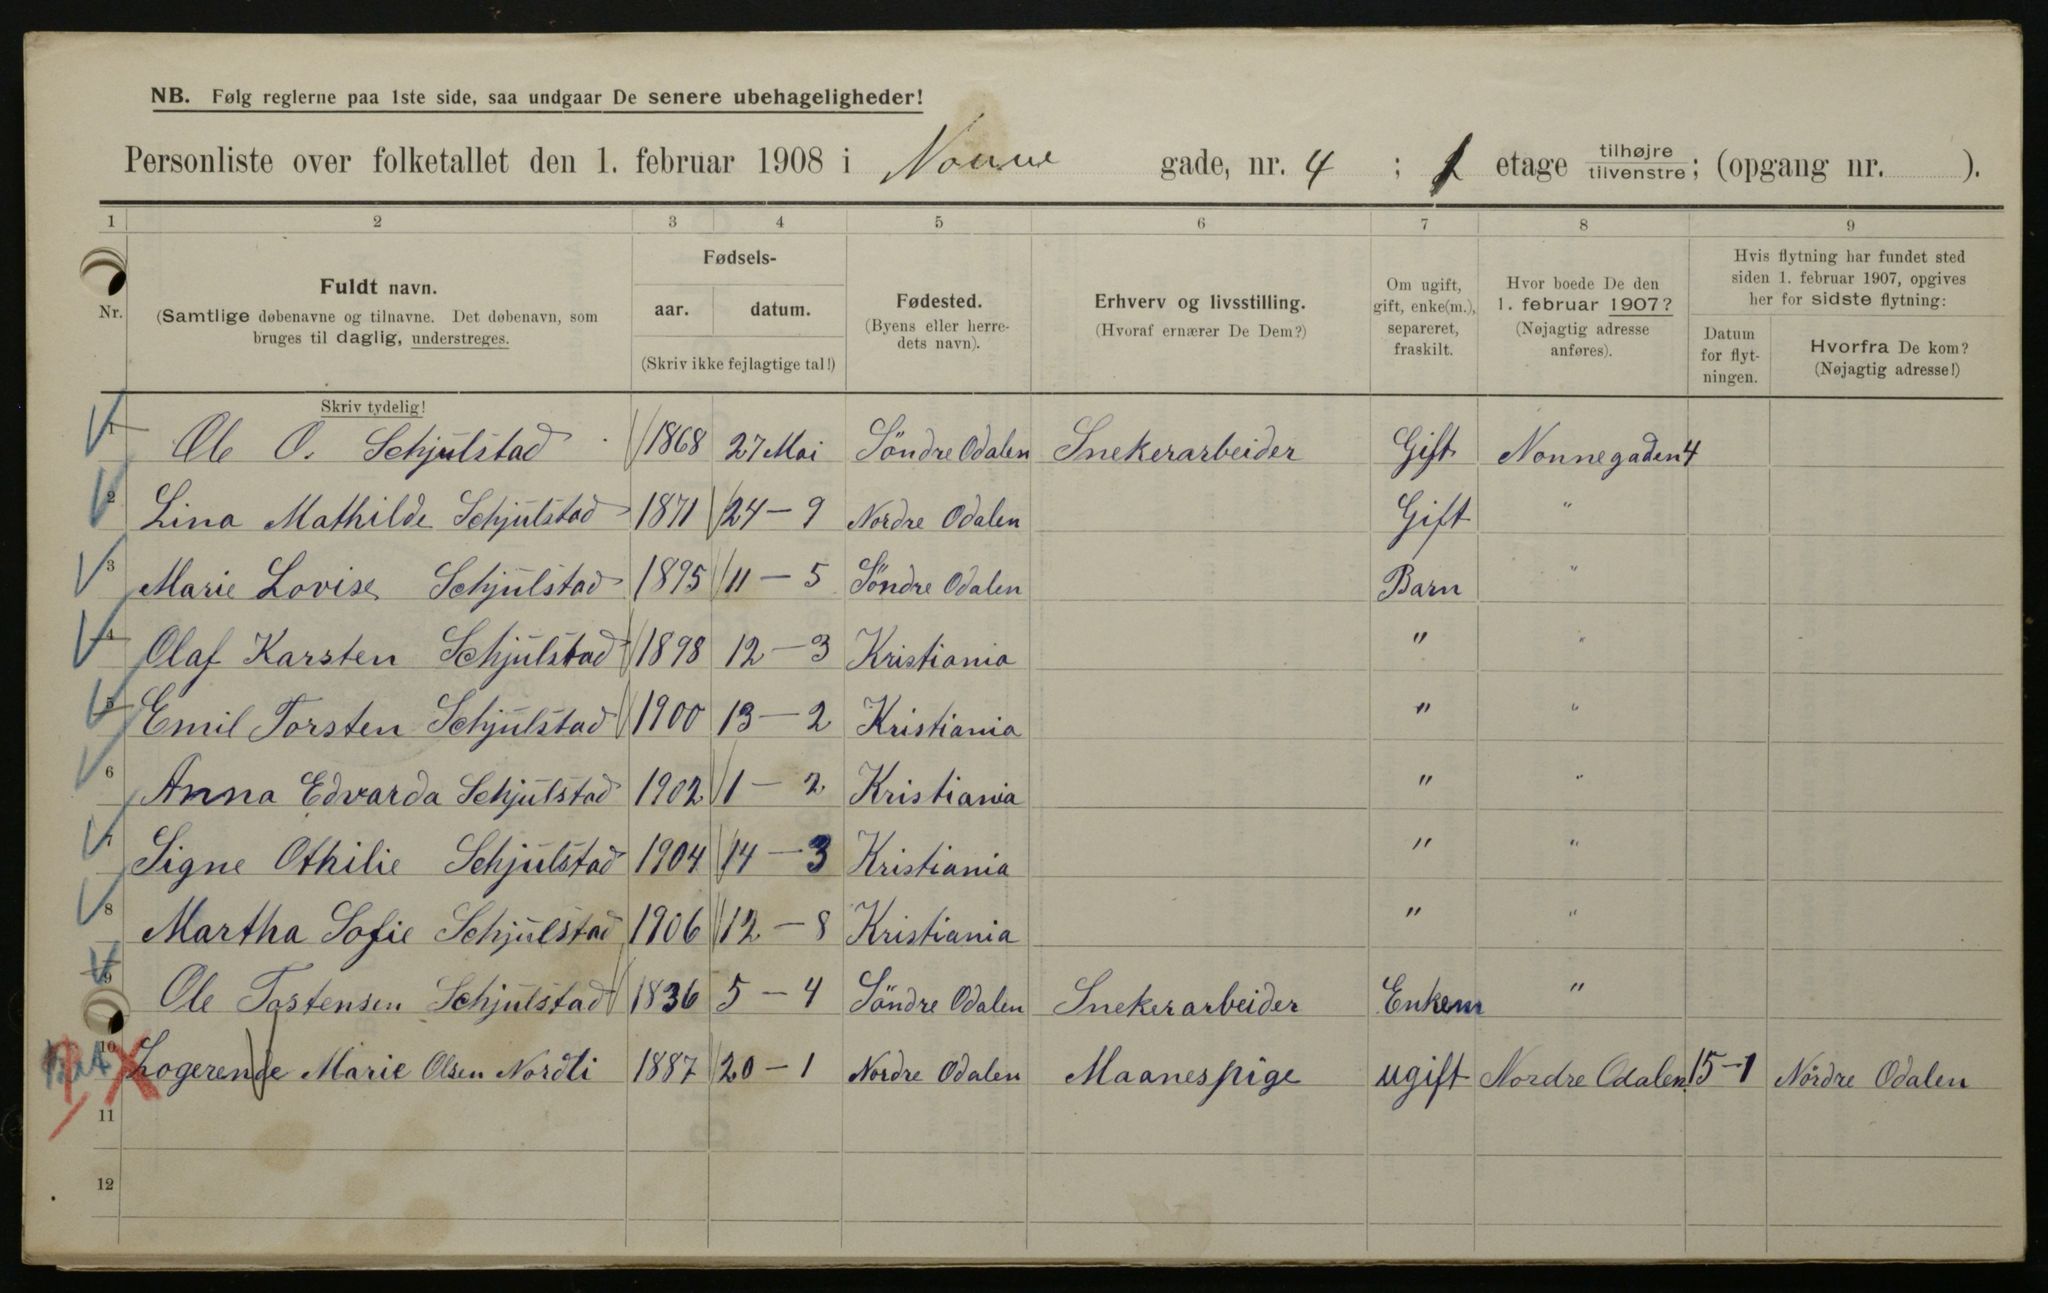 NB. Følg reglerne paa 1ste side, saa undgaar De senere ubehageligheder!
Personliste over folketallet den 1. februar 1908 i Nonne gade, nr. 4 ; 1 etage tilhøjre tilvenstre; (opgang nr. ).
1 2 3 4 5 6 7 8 9
Nr.
Fuldt navn.
(Samtlige døbenavne og tilnavne. Det døbenavn, som
bruges til daglig, understreges.
Fødsels-
aar. datum.
(Skriv ikke fejlagtige tal!)
Fødested.
(Byens eller herre-
dets navn).
Erhverv og livsstilling.
(Hvoraf ernærer De Dem?)
Om ugift,
gift, enke(m.),
separeret,
fraskilt.
Hvor boede De den
1. februar 1907?
(Nøjagtig adresse
anføres).
Hvis flytning har fundet sted
siden 1. februar 1907, opgives
her for sidste flytning:
Datum
for flyt-
ningen.
Hvorfra De kom?
(Nøjagtig adresse!)
Skriv tydelig!
1 Ole O. Schjulstad 1868 27 Mai Söndre Odalen Snekerarbeider Gift Nonnegaden 4
2 Lina Mathilde Schjulstad 1871 24 – 9 Nordre Odalen Gift "
3 Marie Lovise Schjulstad 1895 11 – 5 Söndre Odalen Barn "
4 Olaf Karsten Schjulstad 1898 12 – 3 Kristiania " "
5 Emil Torsten Schjulstad 1900 13 – 2 Kristiania " "
6 Anna Edvarda Schjulstad 1902 1 – 2 Kristiania " "
7 Signe Othilie Schjulstad 1904 14 – 3 Kristiania " "
8 Martha Sofie Schjulstad 1906 12 – 8 Kristiania " "
9 Ole Tostensen Schjulstad 1836 5 – 4 Söndre Odalen Snekerarbeider Enkem "
10 Logerende Marie Olsen Nordli 1887 20 – 1 Nordre Odalen Maanespige ugift Nordre Odalen 15–1 Nördre Odalen
11
12